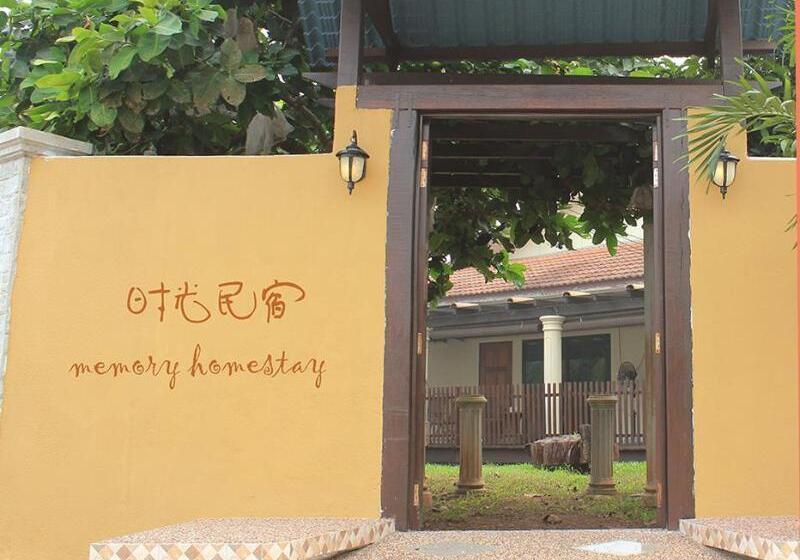 时光民宿
memory homestay